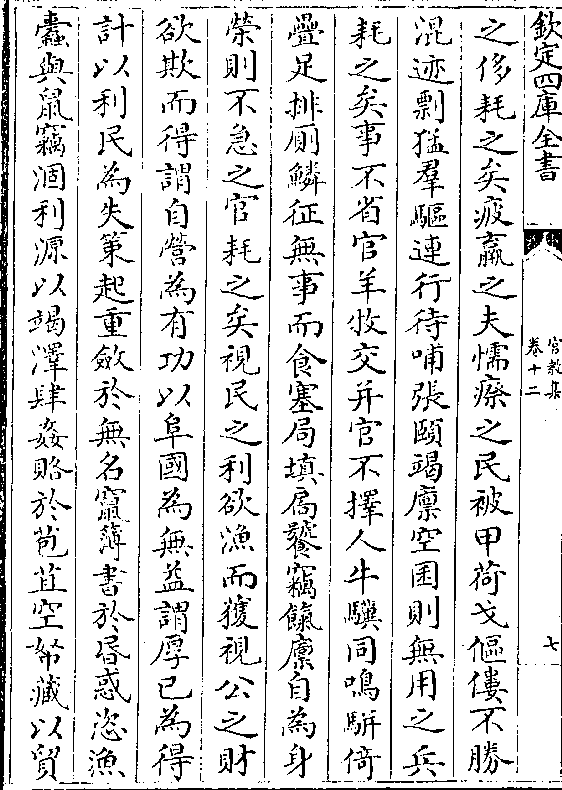 欽定四庫全書
宮教集
卷十二
七
之侈耗之矣疲羸之夫懦瘵之民被甲荷戈傴僂不勝
混迹剽猛羣驅連行待哺張頤竭廩空囷則無用之兵
耗之矣事不省官羊牧交并官不擇人牛驥同鳴駢倚
疊足排廁鱗征無事而食塞局填扄饕竊餼廩自為身
榮則不急之官耗之矣視民之利欲漁而獲視公之財
欲欺而得謂自營為有功以阜國為無益謂厚已為得
計以利民為失策起重斂於無名竄簿書於昏惑恣漁
蠹與鼠竊涸利源以竭澤肆姦賂於苞苴空帑藏以貿